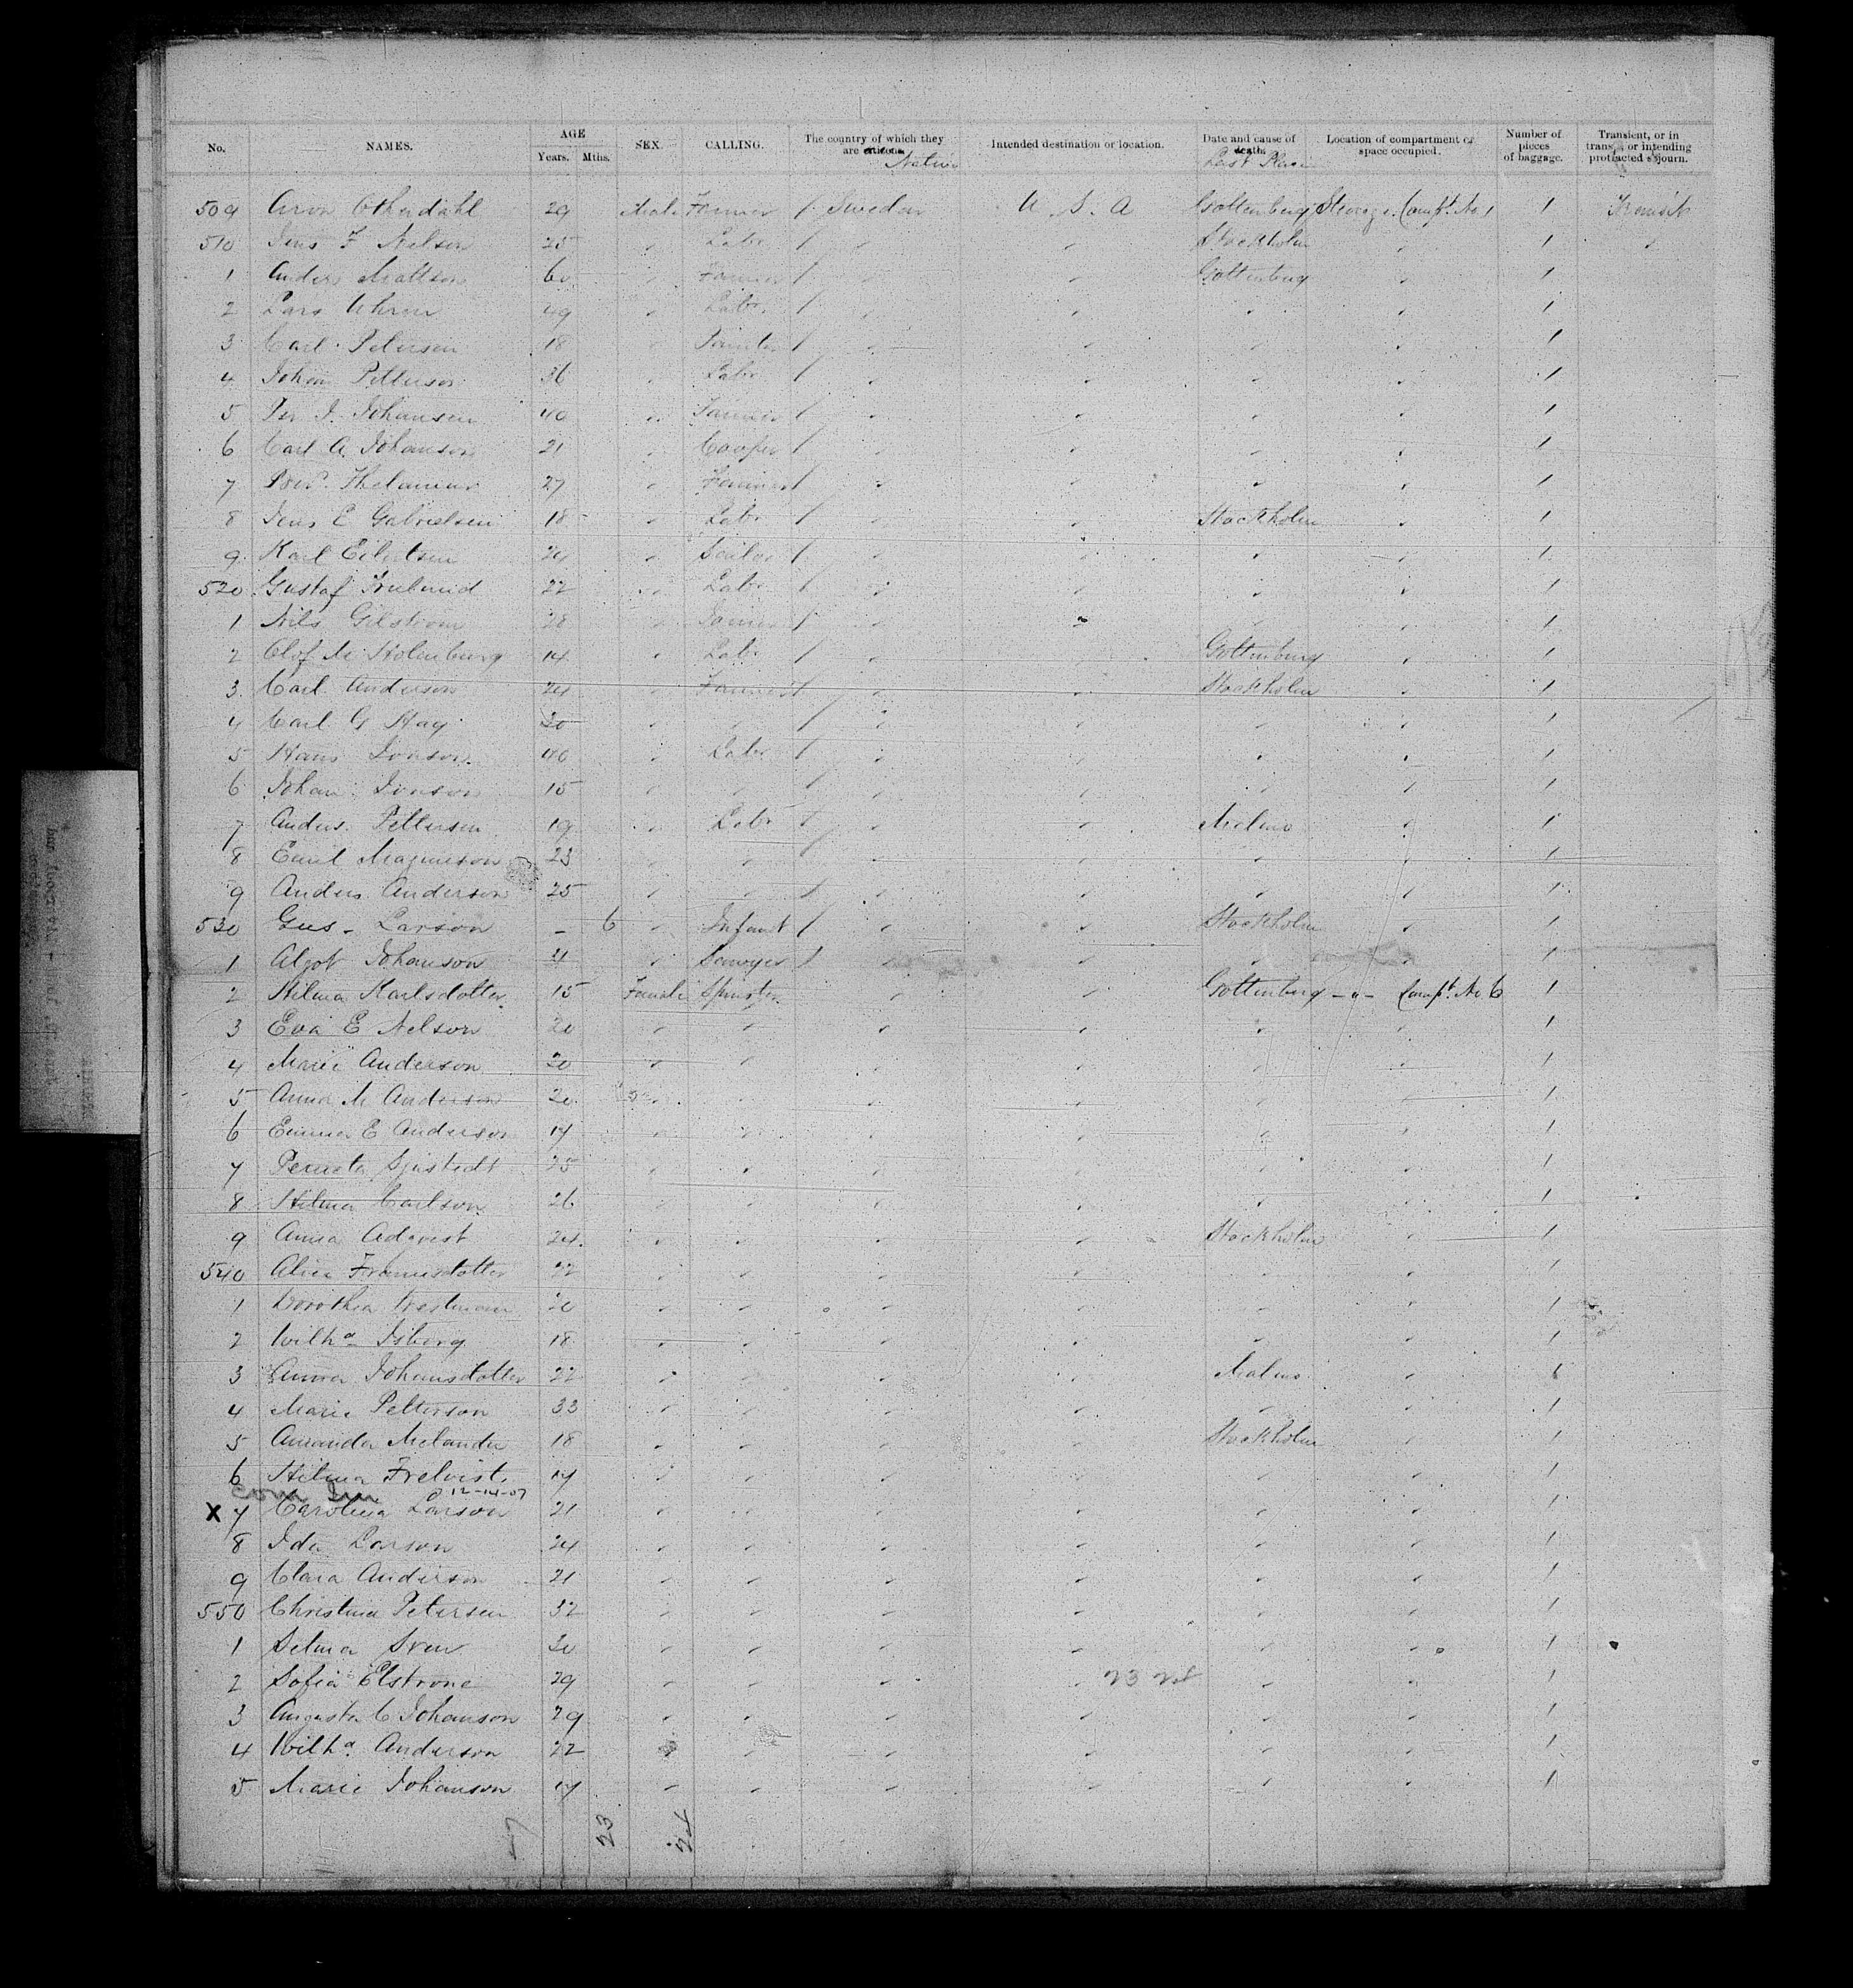 No. NAMES. AGE Years. Mths. SEX. CALLING. The country of which they are citizens. Native Intended destination or location. Date and cause of death. Last Place Location of compartment or space occupied. Number of pieces of baggage. Transient, or in trans, or intending protracted sojourn.
509 29 Male Farmer / Sweden U. S. A Gottenberg Steerage. Compt. No 1 1 Transit
510 Jens F Nelson 25 " Labr / " " Stockholm " 1 "
1 Anders Mattson 60 " Farmer / " " Gottenburg " 1
2 Lars 49 " Labr / " " " " 1
3 Carl Petersen 18 " Painter / " " " " 1
4 Johan Petterson 36 " Labr / " " " " 1
5 Per J. Johansen 40 " Farmer / " " " " 1
6 Carl A. Johanson 21 " Cooper / " " " " 1
7 27 " Farmer / " " " " 1
8 Jens E Gabrielsen 18 " Labr / " " Stockholm " 1
9 Karl 24 " Sailor / " " " " 1
520 Gustaf 22 " Labr / " " " " 1
1 Nils Gilstrom 28 " Farmer / " " " " 1
2 Olof M Holmburg 14 " Labr / " " Gottenburg " 1
3 Carl Anderson 24 " Farmer / " " Stockholm " 1
4 Carl G Hay 20 " " / " " " " 1
5 Hans Jonson 40 " Labr / " " " " 1
6 Johan Jonson 15 " " / " " " " 1
7 Anders Pettersen 19 " Labr / " " Malmo " 1
8 Emil Magnuson 23 " " / " " " " 1
9 Anders Anderson 25 " " / " " " " 1
530 Gus - Larson - 6 " Infant / " " Stockholm " 1
1 Algot Johanson " Sawyer / " " " " 1
2 Hilma Karlsdotter 15 Female Spinster " " Gottenburg - " - Compt. No 6 1
3 Eva E Nelson 20 " " " " " " 1
4 Marie Anderson 20 " " " " " " 1
5 Anna M Anderson 20 " " " " " " 1
6 Emma E Anderson 17 " " " " " " 1
7 Sjustedt 25 " " " " " " 1
8 Hilma Carlson 26 " " " " " " 1
9 Anna 24 " " " " Stockholm " 1
540 22 " " " " " " 1
1 Dorothea 20 " " " " " " 1
2 Wilha Isberg 18 " " " " " " 1
3 Anna Johansdotter 22 " " " " Malmo " 1
4 Marie Petterson 33 " " " " " " 1
5 Amanda Melander 18 " " " " Stockholm " 1
6 Hilma Frelvist 17 " " " " " " 1
12-14-07
X 7 Carolina Larson 21 " " " " " " 1
8 Ida Larson 24 " " " " " " 1
9 Clara Anderson 21 " " " " " " 1
550 Christina Petersen 32 " " " " " " 1
1 Selma Sven 20 " " " " " " 1
2 Sofia Elstrone 29 " " " " " " 1
23
3 Augusta C Johanson 29 " " " " " " 1
4 Wilha Anderson 22 " " " " " " 1
5 Marie Johanson 17 " " " " " " 1
23 24